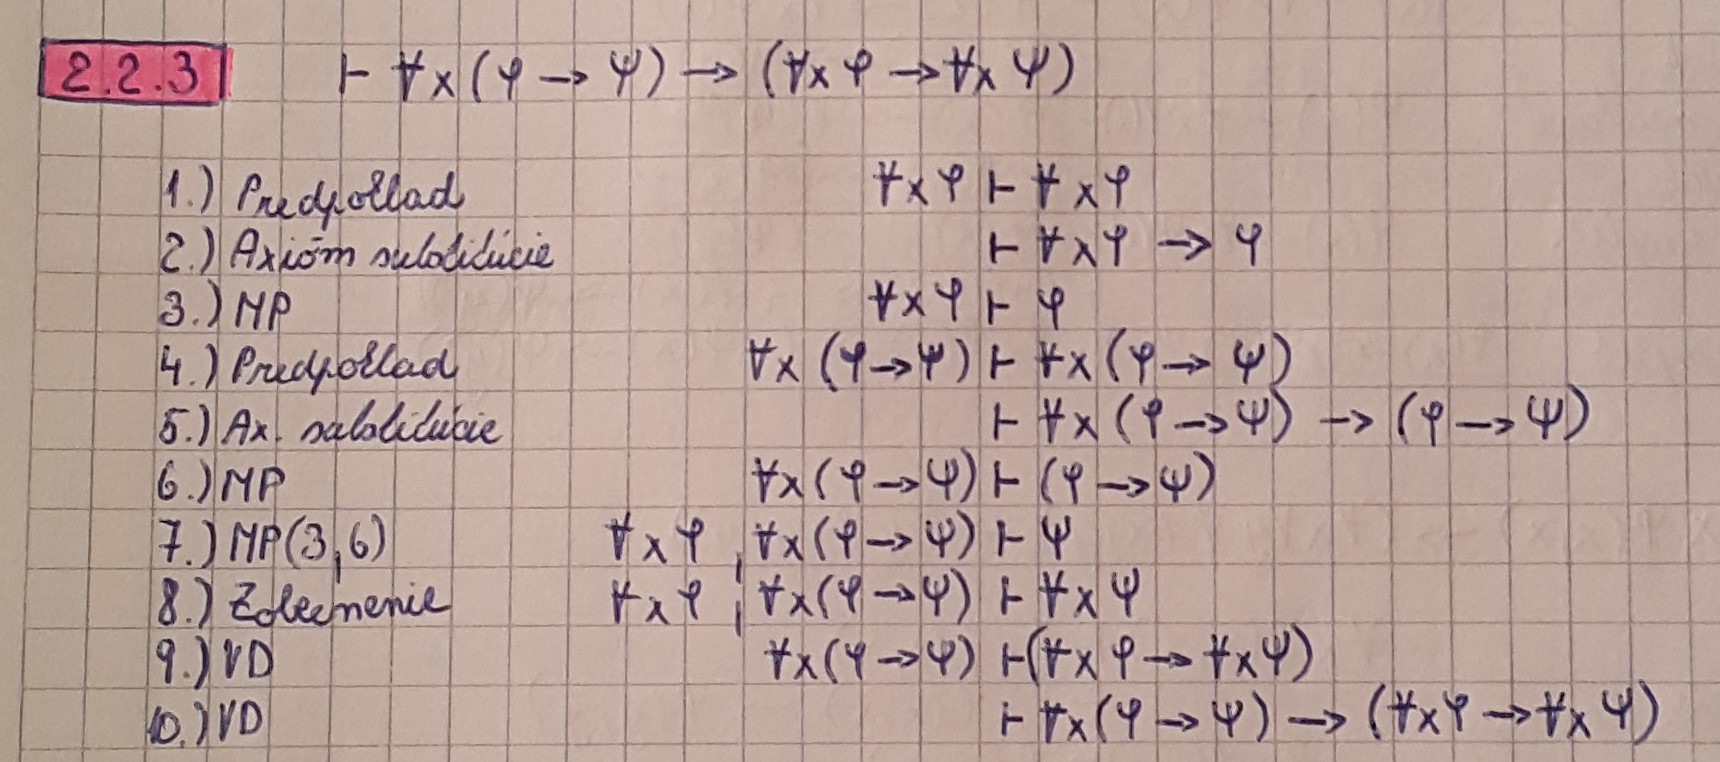 2.2.3 ⊢ ∀x(φ → ψ) → (∀x φ → ∀x ψ)
1.) Predpoklad ∀xφ ⊢ ∀xφ
2.) Axióm substitúcie ⊢ ∀xφ → φ
3.) MP ∀xφ ⊢ φ
4.) Predpoklad ∀x(φ → ψ) ⊢ ∀x(φ → ψ)
5.) Ax. substitúcie ⊢ ∀x(φ → ψ) → (φ → ψ)
6.) MP ∀x(φ → ψ) ⊢ (φ → ψ)
7.) MP(3,6) ∀xφ, ∀x(φ → ψ) ⊢ ψ
8.) Zovšeobecnenie ∀xφ, ∀x(φ → ψ) ⊢ ∀xψ
9.) VD ∀x(φ → ψ) ⊢ (∀xφ → ∀xψ)
10.) VD ⊢ ∀x(φ → ψ) → (∀xφ → ∀xψ)